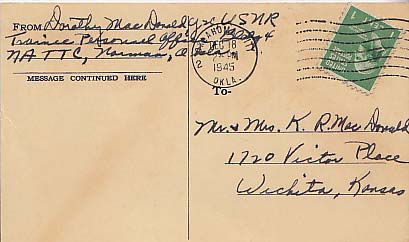 FROM Dorothy MacDonald Y3c USNR
Trainee Personnel Office, Bldg 4
NATTC, Norman, Okla.
MESSAGE CONTINUED HERE
OKLAHOMA CITY
DEC 18
PM
1945
OKLA.
2
1
To-
Mr. & Mrs. K. R. MacDonald
1720 Victor Place
Wichita, Kansas